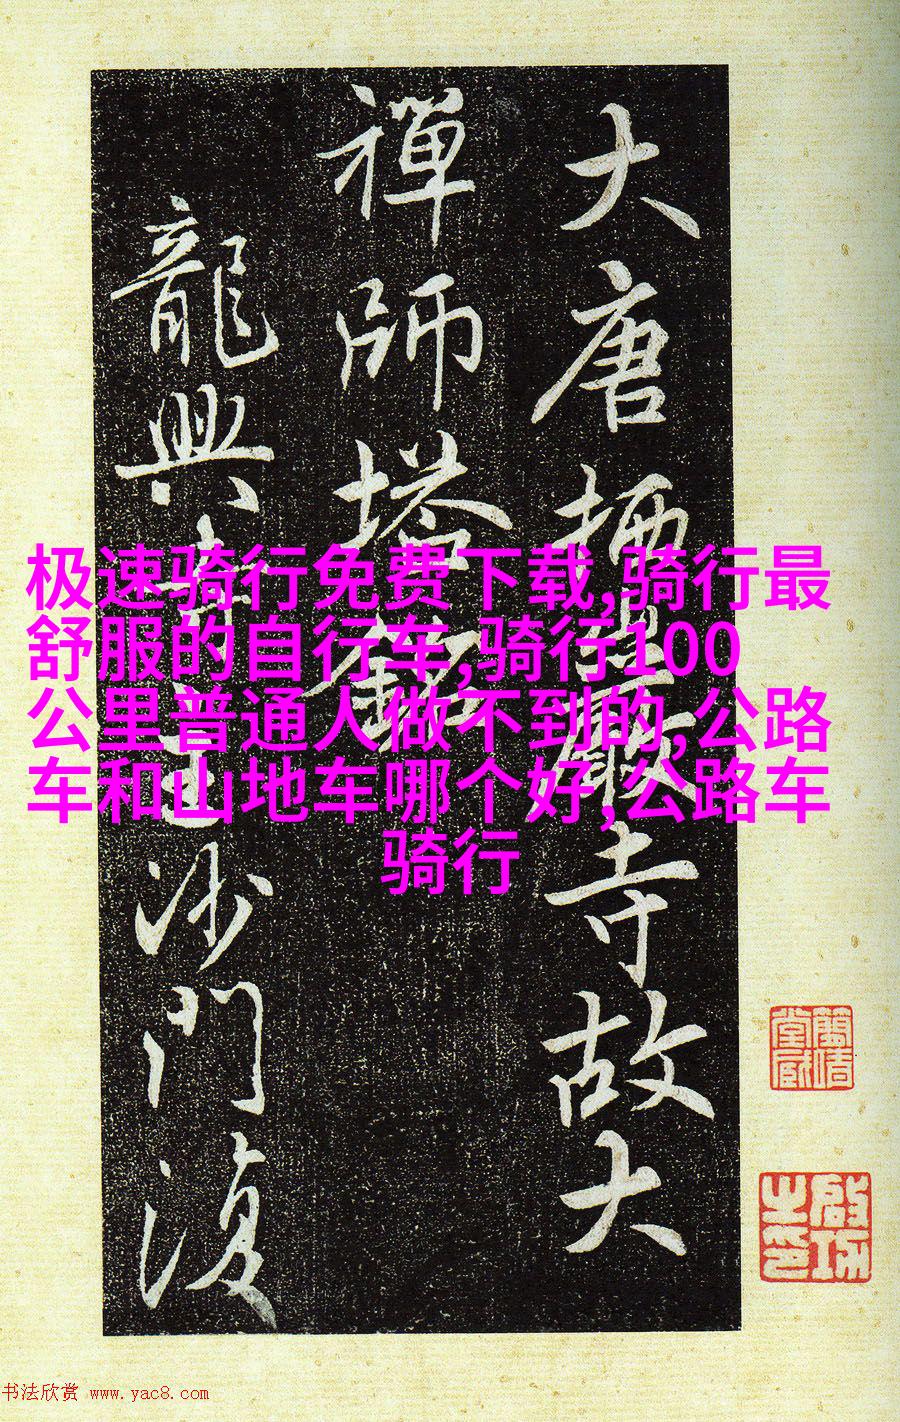 极速骑行免费下载,骑行最
舒服的自行车,骑行100
公里普通人做不到的,公路
车和山地车哪个好,公路车
骑行
大唐栖巖寺故大
禪師塔銘
龍興寺沙門復
啟功之印
书法欣赏 www.yac8.com